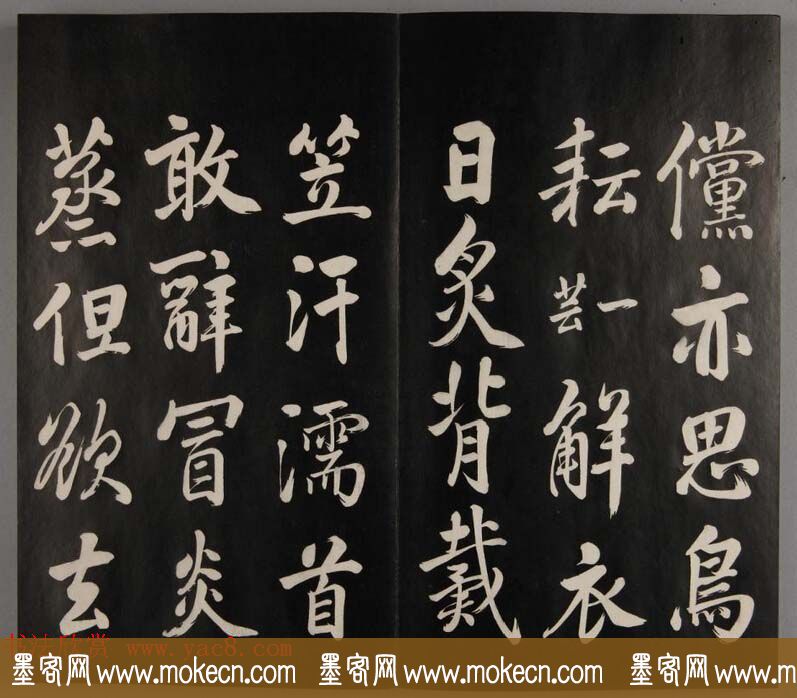 儻亦思鳥
耘一芸解衣
日炙背戴
笠汗濡首
敢辭冒炎
蒸但欲去
书法欣赏 www.yac8.com
墨客网 www.mokecn.com 墨客网 www.mokecn.com 墨客网 www.mokecn.com